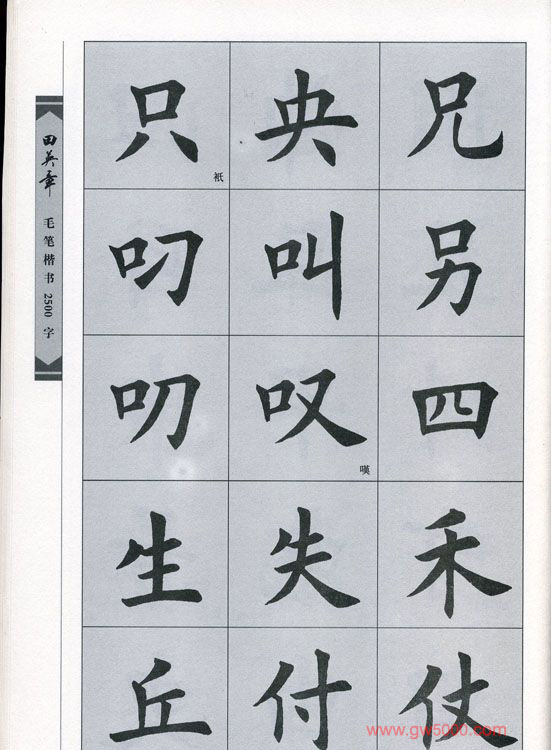 田英章 毛笔楷书 2500 字
只 衹 央 兄
叼 叫 另
叨 叹 嘆 四
生 失 禾
丘 付 仗
www.gw5000.com